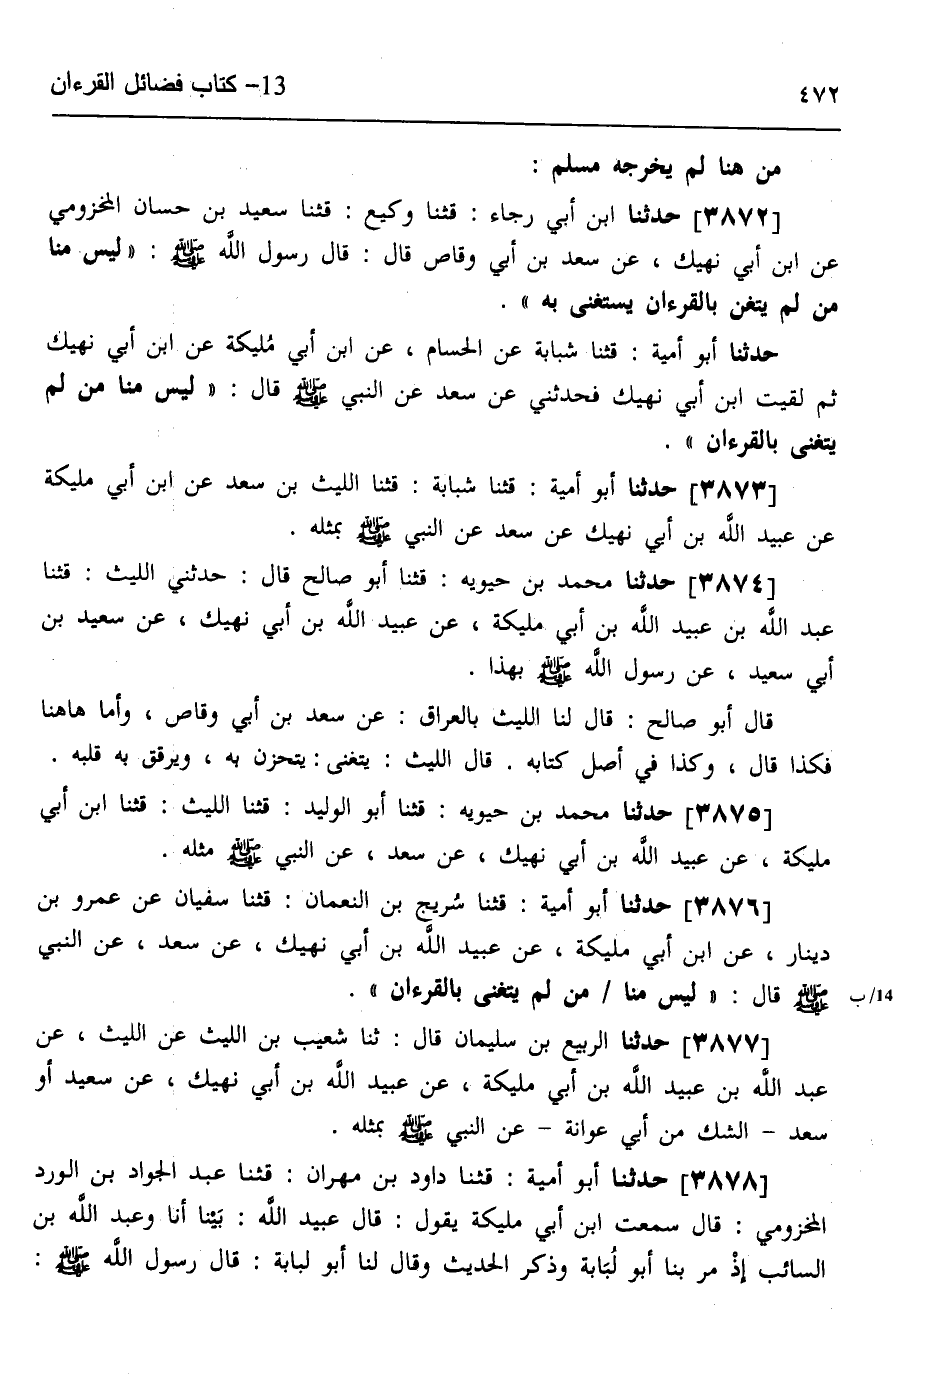 ٤٧٢ 13- كتاب فضائل القرءان
من هنا لم يخرجه مسلم :
[٣٨٧٢] حدثنا ابن أبي رجاء : قثنا وكيع : قثنا سعيد بن حسان المخزومي
عن ابن أبي نهيك ، عن سعد بن أبي وقاص قال : قال رسول اللَّه ﷺ : « ليس منا
من لم يتغن بالقرءان يستغنى به » .
حدثنا أبو أمية : قثنا شبابة عن الحسام ، عن ابن أبي مُليكة عن ابن أبي نهيك
ثم لقيت ابن أبي نهيك فحدثني عن سعد عن النبي ﷺ قال : « ليس منا من لم
يتغنى بالقرءان » .
[٣٨٧٣] حدثنا أبو أمية : قثنا شبابة : قثنا الليث بن سعد عن ابن أبي مليكة
عن عبيد اللَّه بن أبي نهيك عن سعد عن النبي ﷺ بمثله .
[٣٨٧٤] حدثنا محمد بن حيويه : قثنا أبو صالح قال : حدثني الليث : قثنا
عبد اللَّه بن عبيد اللَّه بن أبي مليكة ، عن عبيد اللَّه بن أبي نهيك ، عن سعيد بن
أبي سعيد ، عن رسول اللَّه ﷺ بهذا .
قال أبو صالح : قال لنا الليث بالعراق : عن سعد بن أبي وقاص ، وأما هاهنا
فكذا قال ، وكذا في أصل كتابه . قال الليث : يتغنى : يتحزن به ، ويرقق به قلبه .
[٣٨٧٥] حدثنا محمد بن حيويه : قثنا أبو الوليد : قثنا الليث : قثنا ابن أبي
مليكة ، عن عبيد اللَّه بن أبي نهيك ، عن سعد ، عن النبي ﷺ مثله .
[٣٨٧٦] حدثنا أبو أمية : قثنا سُريج بن النعمان : قثنا سفيان عن عمرو بن
دينار ، عن ابن أبي مليكة ، عن عبيد اللَّه بن أبي نهيك ، عن سعد ، عن النبي
ﷺ قال : « ليس منا / من لم يتغنى بالقرءان » .
14/ب
[٣٨٧٧] حدثنا الربيع بن سليمان قال : ثنا شعيب بن الليث عن الليث ، عن
عبد اللَّه بن عبيد اللَّه بن أبي مليكة ، عن عبيد اللَّه بن أبي نهيك ، عن سعيد أو
سعد - الشك من أبي عوانة - عن النبي ﷺ بمثله .
[٣٨٧٨] حدثنا أبو أمية : قثنا داود بن مهران : قثنا عبد الجواد بن الورد
المخزومي : قال سمعت ابن أبي مليكة يقول : قال عبيد اللَّه : بَيْنا أنا وعبد اللَّه بن
السائب إذْ مر بنا أبو لُبَابة وذكر الحديث وقال لنا أبو لبابة : قال رسول اللَّه ﷺ :